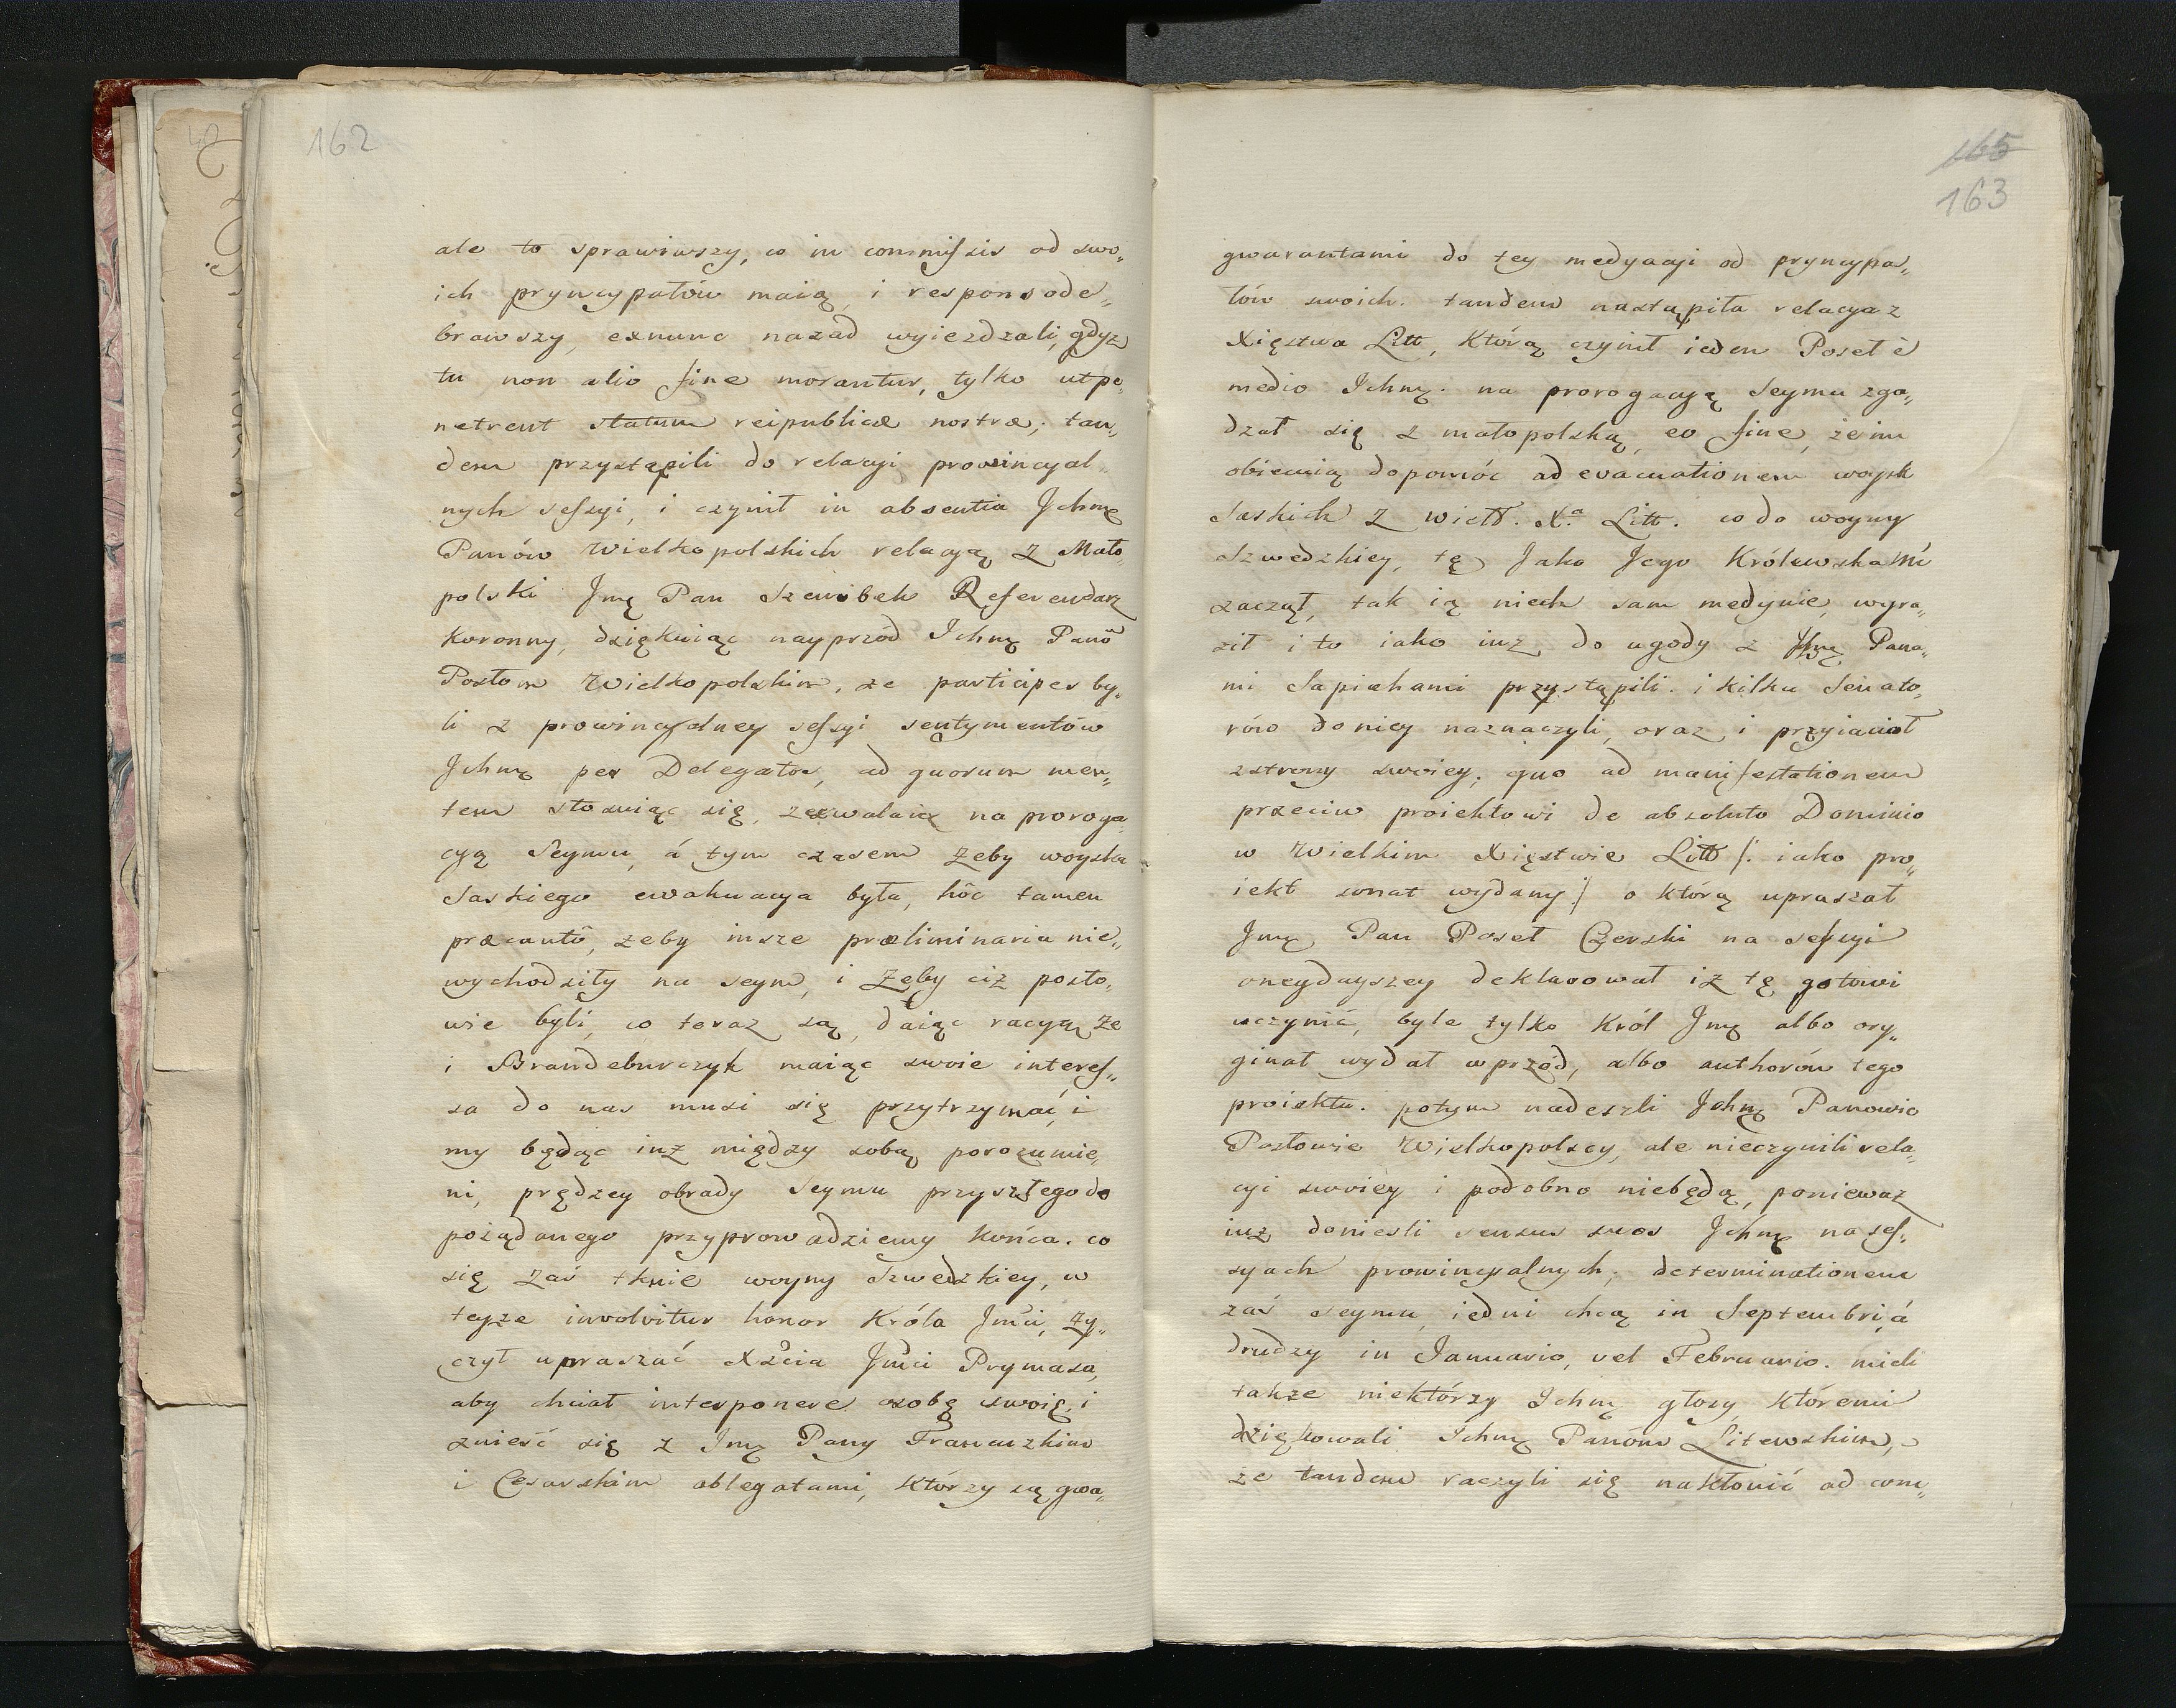 162
ale to sprawiwszy, co in commissis od swo„
ich pryncypałów maią, i respons ode„
brawszy, exnunc nazad wyiezdzali, gdyz
tu non alio fine morantur, tylko ut pe„
netrent statum reipublicæ nostræ; tan„
dem przystąpili do relacyi prowincyal„
nych sessyi, i czynił in absentia Ichmę
Panów Wielkopolskich relacyą z Mało„
polski Jmę Pan Szembek Referendarz
Koronny, dziękuiąc nayprzód Ichmę Panō
Posłom Wielkopolskim, ze participes by„
li z prowincyalney sessyi sentymentów
Ichmę per Delegatos, ad quorum men„
tem stosuiąc się, zezwalaią na proroga„
cyą Seymu, á tym czasem zeby woyska
Saskiego ewakuacya była, hôc tamen
præcautô, zeby insze præliminaria nie„
wychodziły na seym, i zeby ciz posło„
wie byli, co teraz są, daiąc racyą ze
i Brandeburczyk maiąc swoie interes„
sa do nas musi się przytrzymać, i
my będąc iuz między sobą porozumie„
ni, prędzey obrady Seymu przyszłego do
poządanego przyprowadziemy końca. co
się zaś tknie woyny Szwedzkiey, w
teyze involvitur honor Króla Jmci, zy„
czył upraszać Xcia Jmci Prymasa,
aby chciał interponere osobę swoię, i
znieść się z Jmę Pany Francuzkim
i Cesarskim oblegatami, którzy są gwa„
165
163
gwarantami do tey medyacyi od pryncypa„
łów swoich. tandem nastąpiła relacya z
Xięstwa Litt, którą czynił ieden Poseł è
medio Ichmę. na prorogacyą Seymu zga„
dzał się z małopolską, eo fine, ze im
obiecuią dopomóc ad evacuationem woysk
Saskich z wielk. Xa. Litt. co do woyny
Szwedzkiey, tę Jako Jego Królewska Mć
zaczął, tak ią niech sam medyuie, wyra„
ził i to iako iuz do ugody z Jchmę Pana„
mi Sapiehami przystąpili. i kilku Senato„
rów do niey naznaczyli, oraz i przyiaciół
z strony swoiey. quo ad manifestationem
przeciw proiektowi de absoluto Dominio
w Wielkim Xięstwie Litt /: iako pro„
iekt sonat wydany :/ o którą upraszał
Jmę Pan Poseł Czerski na sessyi
oneydayszey deklarował iz tę gotowi
uczynić, byle tylko Król Jmę albo ory„
ginał wydał wprzód, albo authorów tego
proiektu. potym nadeszli Ichmę Panowie
Posłowie Wielkopolscy, ale nieczynili rela„
cyi swoiey i podobno niebędą, poniewaz
iuz doniesli sensus suos Ichmę na ses„
syach prowincyalnych, determinationem
zaś seymu, iedni chcą in Septembri, á
drudzy in Januario, vel Februario. mieli
takze niektórzy Ichmę głosy, któremi
dziękowali Ichmę Panóm Litewskim,
ze tandem raczyli się nakłonić ad com„